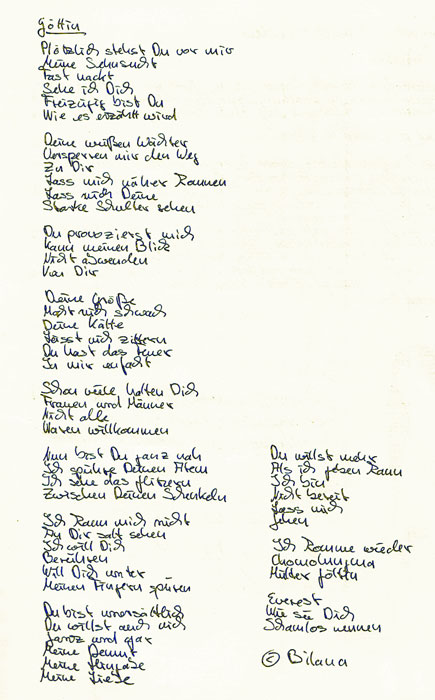 Göttin
Plötzlich stehst Du vor mir
Meine Sehnsucht
Fast nackt
Sehe ich Dich
Freizügig bist Du
Wie es erzählt wird
Deine weißen Wächter
Versperren mir den Weg
Zu Dir
Lass mich näher kommen
Lass mich Deine
Starke Schulter sehen
Du provozierst mich
Kann meinen Blick
Nicht abwenden
Von Dir
Deine Größe
Macht mich schwach
Deine Kälte
Lässt mich zittern
Du hast das Feuer
In mir entfacht
Schon viele hatten Dich
Frauen und Männer
Nicht alle
Waren willkommen
Nun bist Du ganz nah
Ich spühre Deinen Atem
Ich sehe das glitzern
Zwischen Deinen Schenkeln
Ich kann mich nicht
An Dir satt sehen
Ich will Dich
Berühren
Will Dich unter
Meinen Fingern spüren
Du bist unersättlich
Du willst auch mich
Ganz und gar
Meine Demut
Meine Hingabe
Meine Liebe
Du willst mehr
Als ich geben kann
Ich bin
Nicht bereit
Lass mich
Gehen
Ich komme wieder
Chomolungma
Mutter Göttin
Everest
Wie sie Dich
Schamlos nennen
© Bilana